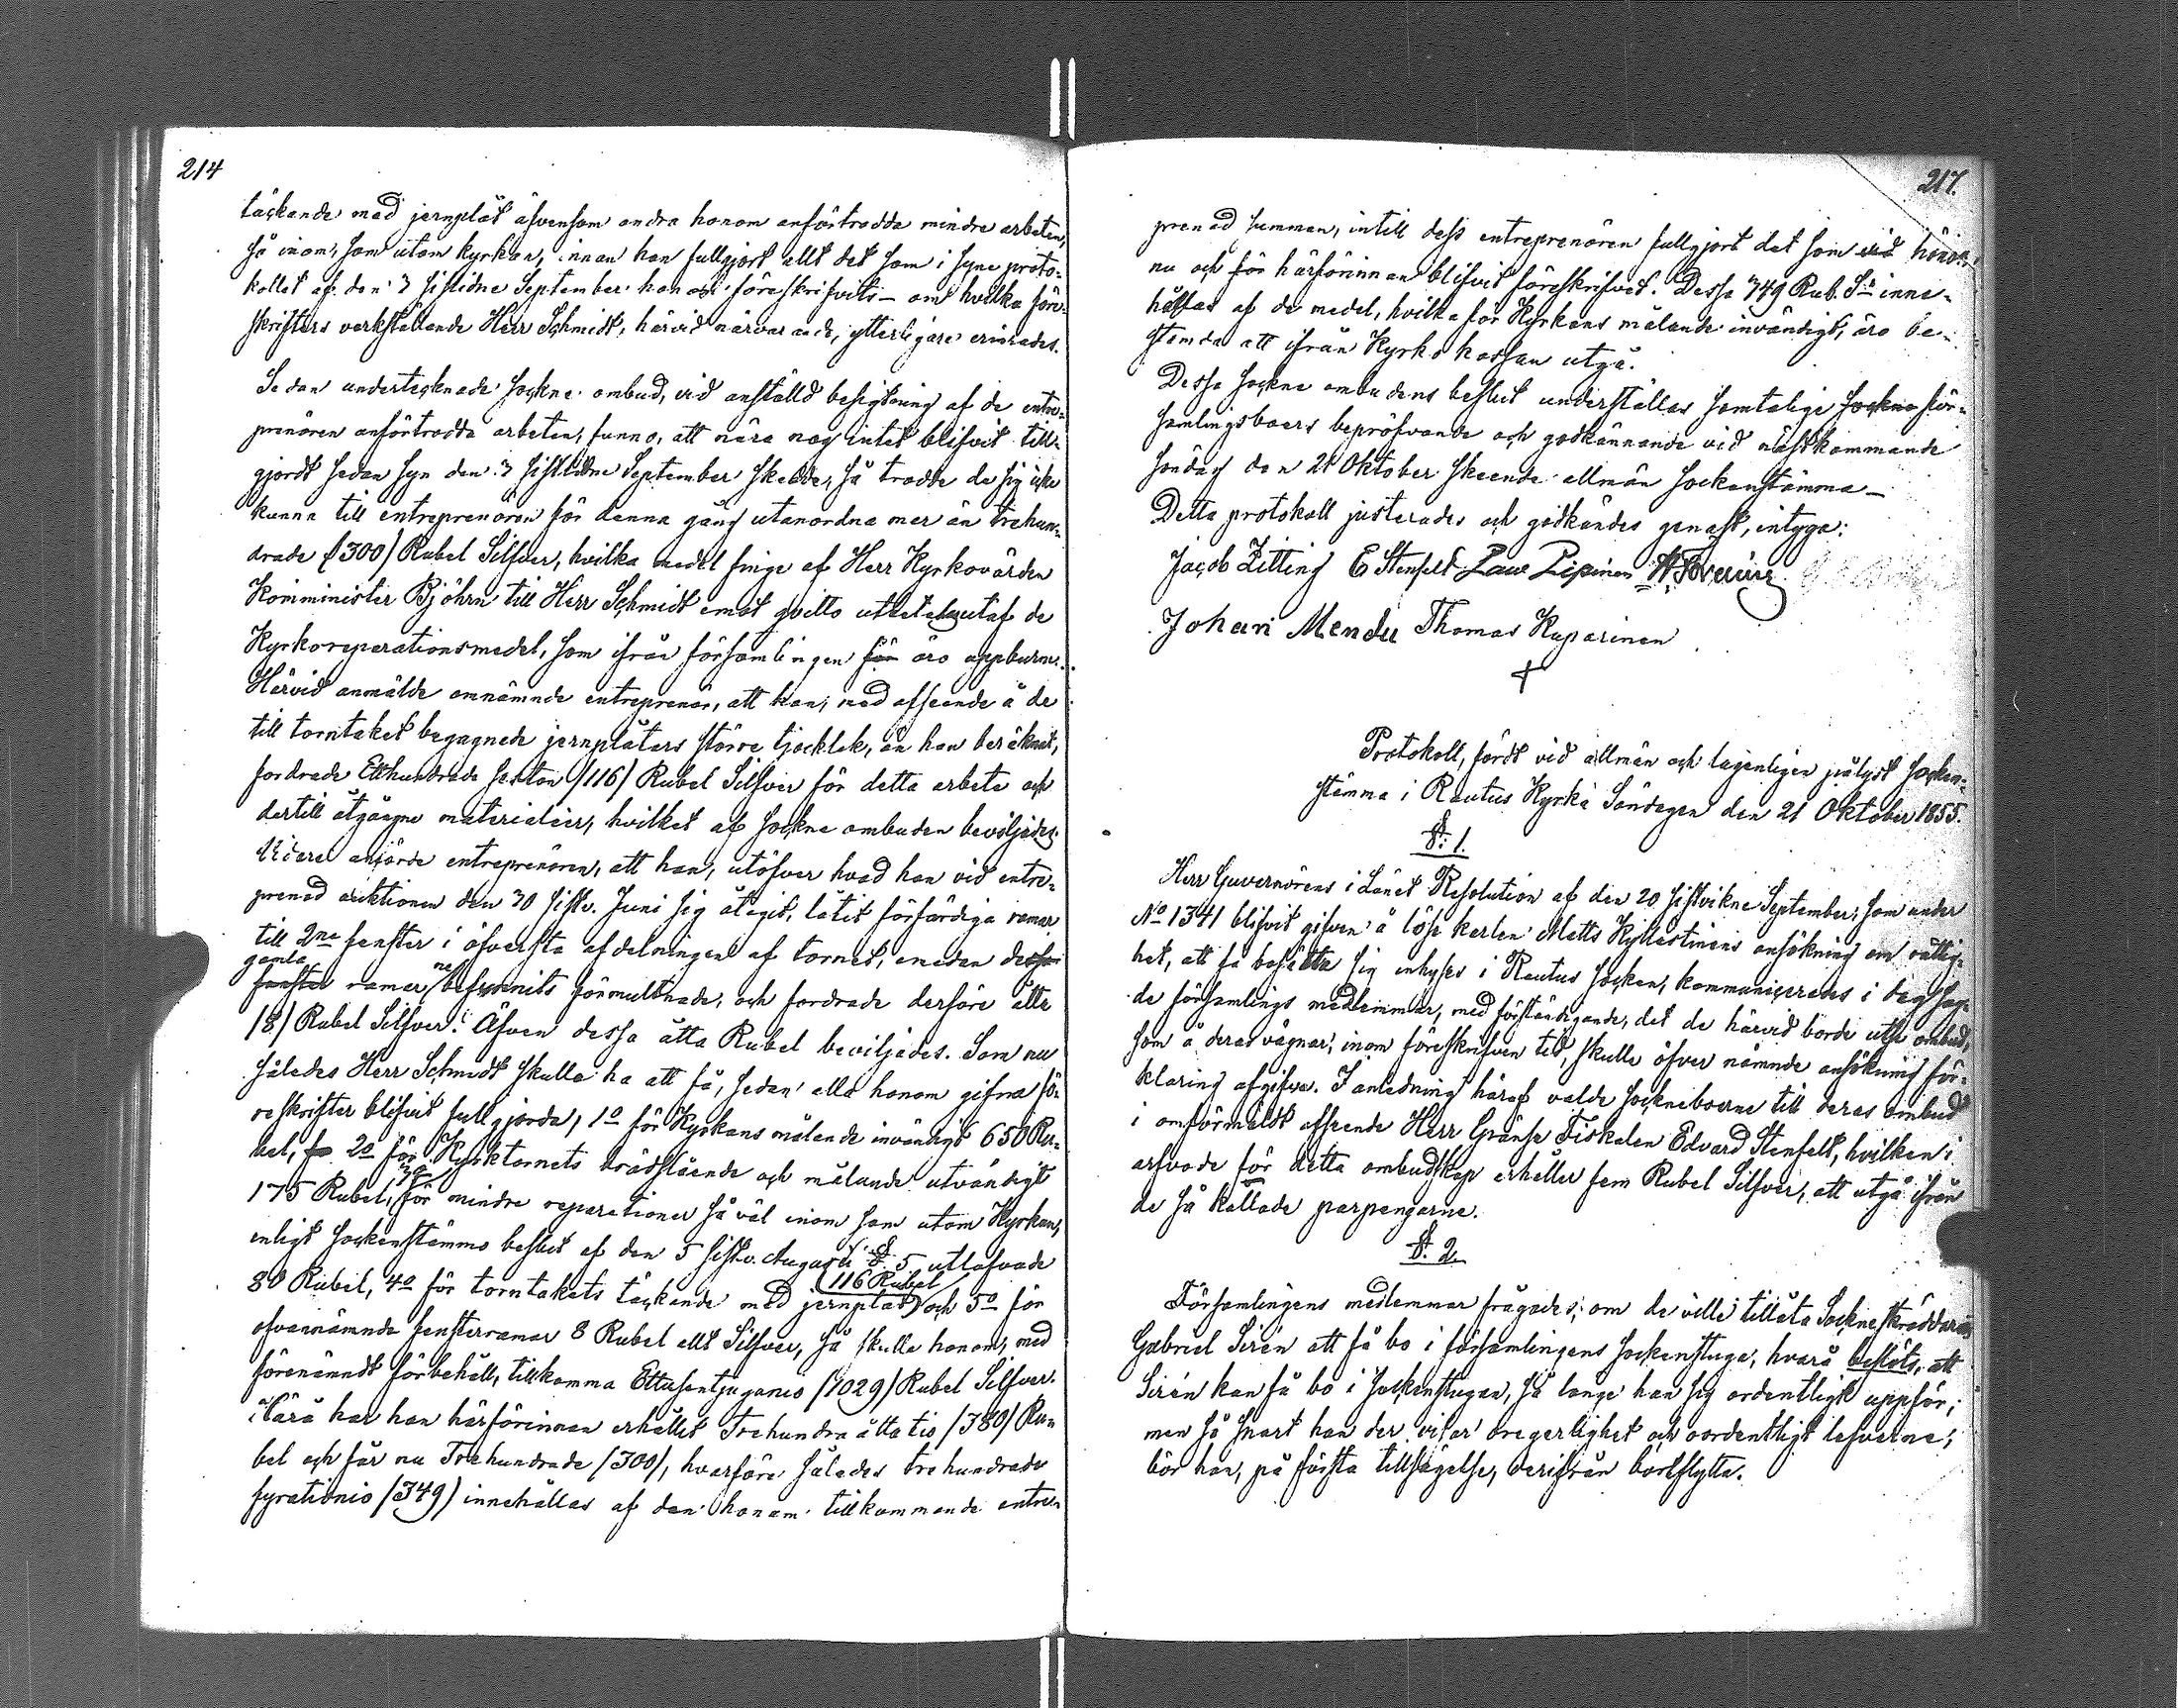 214
täckande med jernplåt äfvensom andra honom anförtrodda mindre arbeten,
så inom, som utom kyrkan, innan han fullgjort allt det som i syne proto-
kollet af den 3 sistlidne September honom föreskrifvits – om hvilka före-
skrifters verkställande Herr Schmidt, härvid närvarande, ytterligare erinrades.
Sedan undertecknade sockne ombud, vid anställd besigtning af de entre-
prenören anförtrodda arbeten, funno, att nära nog intet blifvit till-
gjordt sedan syn den 3 sistlidne September skedde, så trodde de sig icke
kunna till entreprenören för denna gång utanordna mer än trehun-
drade (300) Rubel Silfver, hvilka medel finge af Herr Kyrkovärden
Komminister Björn till Herr Schmidt emot qvitto utbetalas utaf de
Kyrkoreparationsmedel, som ifrån församlingen för äro uppburne.
Härvid anmälde omnämnde entreprenör, att han, med afseende å de
till torntaket begagnade jernplåtars större tjocklek, än han beräknat,
fordrade Etthundrade sexton (116) Rubel Silfver för detta arbete och
dertill åtgångne materialier, hvilket af sockne ombuden beviljades.
Vidare anförde entreprenören, att han, utöfver hvad han vid entre-
prenad auktionen den 30 sistl. Juni sig åtagit, låtit förfärdiga ramar
till 2ne fenster i öfversta afdelningen af tornet, emedan dessa
gamla
fenster ramar befunnits förmultnade, och fordrade derföre åtta
(8) Rubel Silfver. Äfven dessa åtta Rubel beviljades. Som nu
således Herr Schmidt skulle ha att få, sedan alla honom gifna fö-
reskrifter blifvit fullgjorda, 1o för Kyrkans målande invändigt 650 Ru-
bel, 2o för Kyrktornets brädslående och målande utvändigt
175 Rubel, 3o för mindre reparationer så väl inom som utom Kyrkan,
enligt sockenstämmo beslut af den 5 sistl. Augusti §. 5 utlofvade
80 Rubel, 4o för torntakets täckande med jernplåt 116 Rubel och 5o för
ofvannämnda fensterramar 8 Rubel allt Silfver, så skulle honom, med
förenämndt förbehåll, tillkomma Ettusentjugunio (1029) Rubel Silfver.
härå har han härförinnan erhållit Trehundra åttatio (380) Ru-
bel och får nu Trehundrade (300), hvarföre således trehundrade
fyrationio (349) innehållas af den honom tillkommande entre-
217.
prenad summan, intill dess entreprenören fullgjort det som
nu och för härförinnan blifvit föreskrifvet. Dessa 349 Rub. Sr inne-
hållas af de medel, hvilka för Kyrkans målande invändigt, äro be-
stämda att ifrån Kyrkokassan utgå.
Dessa sockne ombudens beslut underställas samtelige sockne för-
samlingsboers bepröfvande och godkännande vid nästkommande
söndag den 21 Oktober skeende allmän sockenstämma –
Detta protokoll justerades och godkändes genast, intyga:
Jacob Zitting E Stenfelt Paw Pipinen
Johan Mendu Thomas Kuparinen
Protokoll, fördt vid allmän och lagenligen pålyst socken-
stämma i Rautus Kyrka Söndagen den 21 Oktober 1855.
§. 1.
Herr Guvernörens i Länet Resolution af den 20 sistvikne September, som under
No 1341 blifvit gifven å löse karlen Matts Kyllästinens ansökning om rättig-
het, att få bosätta sig inhyses i Rautus socken, kommunicerades i dag sag-
de församlings medlemmar, med förständigande, det de härvid borde utse ombud,
som å deras vägnar, inom föreskrifven tid, skulle öfver nämnde ansökning för-
klaring afgifva. I anledning häraf valde socknboerne till deras ombud
i omförmäldt afseende Herr Gränse Fiskalen Edvard Stenfelt, hvilken i
arfvode för detta ombudskap erhåller fem Rubel Silfver, att utgå ifrån
de så kallade parpengarne.
§. 2.
Församlingens medlemmar frågades, om de ville tillåta Sockneskräddaren
Gabriel Sirén att få bo i församlingens sockenstuga, hvarå beslöts, att
Sirén kan få bo i sockenstugan, så länge han sig ordentligt uppför;
men så snart han der visar oregerlighet och oordentligt lefverne,
bör han, på första tillsägelse, derifrån bortflytta.